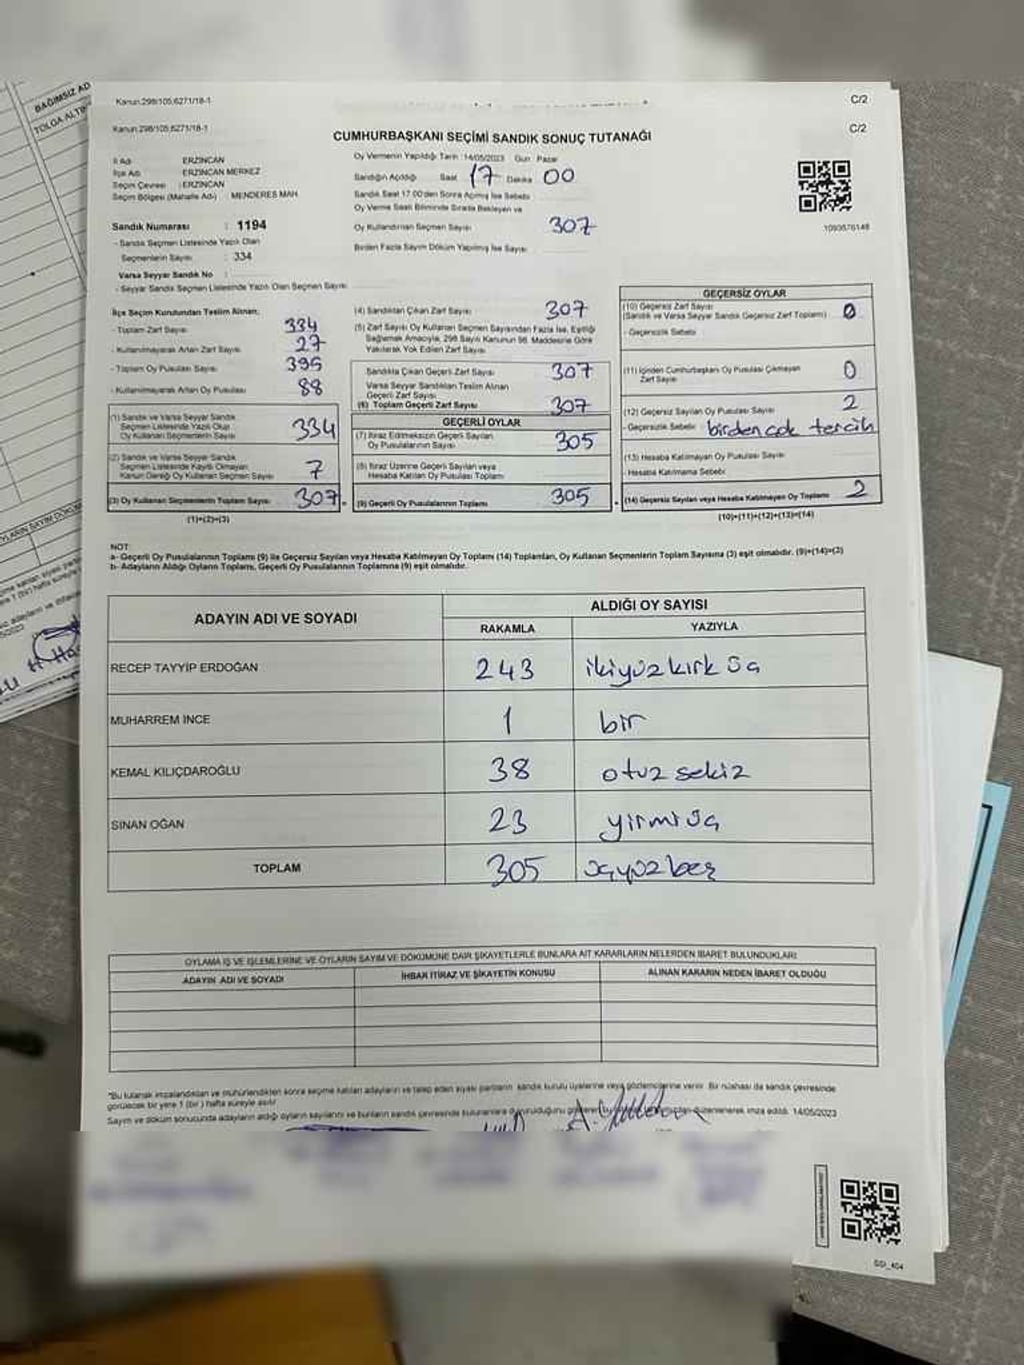 BAĞIMSIZ AD
TOLGA ALTI
Kanun:298/105;6271/18-1
C/2
Kanun:298/105;6271/18-1
C/2
CUMHURBAŞKANI SEÇİMİ SANDIK SONUÇ TUTANAĞI
İl Adı : ERZİNCAN
İlçe Adı : ERZİNCAN MERKEZ
Seçim Çevresi : ERZİNCAN
Seçim Bölgesi (Mahalle Adı) : MENDERES MAH
Sandık Numarası : 1194
- Sandık Seçmen Listesinde Yazılı Olan
Seçmenlerin Sayısı : 334
Varsa Seyyar Sandık No :
- Seyyar Sandık Seçmen Listesinde Yazılı Olan Seçmen Sayısı
Oy Vermenin Yapıldığı Tarih : 14/05/2023 Gün : Pazar
Sandığın Açıldığı Saat 17 Dakika 00
Sandık Saat 17.00'den Sonra Açılmış İse Sebebi
Oy Verme Saati Bitiminde Sırada Bekleyen ve
Oy Kullandırılan Seçmen Sayısı 307
Birden Fazla Sayım Döküm Yapılmış İse Sayısı
1093576148
İlçe Seçim Kurulundan Teslim Alınan;
- Toplam Zarf Sayısı 334
- Kullanılmayarak Artan Zarf Sayısı 27
- Toplam Oy Pusulası Sayısı 395
- Kullanılmayarak Artan Oy Pusulası 88
(1) Sandık ve Varsa Seyyar Sandık
Seçmen Listesinde Yazılı Olup
Oy Kullanan Seçmenlerin Sayısı 334
(2) Sandık ve Varsa Seyyar Sandık
Seçmen Listesinde Kayıtlı Olmayan
Kanun Gereği Oy Kullanan Seçmen Sayısı 7
(3) Oy Kullanan Seçmenlerin Toplam Sayısı 307
(1)+(2)=(3)
(4) Sandıktan Çıkan Zarf Sayısı 307
(5) Zarf Sayısı Oy Kullanan Seçmen Sayısından Fazla İse, Eşitliği
Sağlamak Amacıyla, 298 Sayılı Kanunun 98. Maddesine Göre
Yakılarak Yok Edilen Zarf Sayısı
Sandıkta Çıkan Geçerli Zarf Sayısı 307
Varsa Seyyar Sandıktan Teslim Alınan
Geçerli Zarf Sayısı
(6) Toplam Geçerli Zarf Sayısı 307
GEÇERLİ OYLAR
(7) İtiraz Edilmeksizin Geçerli Sayılan
Oy Pusulalarının Sayısı 305
(8) İtiraz Üzerine Geçerli Sayılan veya
Hesaba Katılan Oy Pusulası Toplamı
(9) Geçerli Oy Pusulalarının Toplamı 305
GEÇERSİZ OYLAR
(10) Geçersiz Zarf Sayısı
(Sandık ve Varsa Seyyar Sandık Geçersiz Zarf Toplamı) 0
- Geçersizlik Sebebi
(11) İçinden Cumhurbaşkanı Oy Pusulası Çıkmayan
Zarf Sayısı 0
(12) Geçersiz Sayılan Oy Pusulası Sayısı 2
- Geçersizlik Sebebi birden çok tercih
(13) Hesaba Katılmayan Oy Pusulası Sayısı
- Hesaba Katılmama Sebebi
(14) Geçersiz Sayılan veya Hesaba Katılmayan Oy Toplamı 2
(10)+(11)+(12)+(13)=(14)
NOT:
a- Geçerli Oy Pusulalarının Toplamı (9) ile Geçersiz Sayılan veya Hesaba Katılmayan Oy Toplamı (14) Toplamları, Oy Kullanan Seçmenlerin Toplam Sayısına (3) eşit olmalıdır. (9)+(14)=(3)
b- Adayların Aldığı Oyların Toplamı, Geçerli Oy Pusulalarının Toplamına (9) eşit olmalıdır.
ADAYIN ADI VE SOYADI
ALDIĞI OY SAYISI
RAKAMLA YAZIYLA
RECEP TAYYİP ERDOĞAN 243 ikiyüzkırk üç
MUHARREM İNCE 1 bir
KEMAL KILIÇDAROĞLU 38 otuz sekiz
SİNAN OĞAN 23 yirmi üç
TOPLAM 305 üçyüz beş
OYLAMA İŞ VE İŞLEMLERİNE VE OYLARIN SAYIM VE DÖKÜMÜNE DAİR ŞİKAYETLERLE BUNLARA AİT KARARLARIN NELERDEN İBARET BULUNDUKLARI
ADAYIN ADI VE SOYADI
İHBAR İTİRAZ VE ŞİKAYETİN KONUSU
ALINAN KARARIN NEDEN İBARET OLDUĞU
"Bu tutanak imzalandıktan ve mühürlendikten sonra seçime katılan adayların ve talep eden siyasi partilerin sandık kurulu üyelerine veya gözlemcilerine verilir. Bir nüshası da sandık çevresinde
görülecek bir yere 1 (bir) hafta süreyle asılır.
Sayım ve döküm sonucunda adayların aldığı oyların sayılarını ve bunların sandık çevresinde
düzenlenerek imza edildi. 14/05/2023
SSİ_404